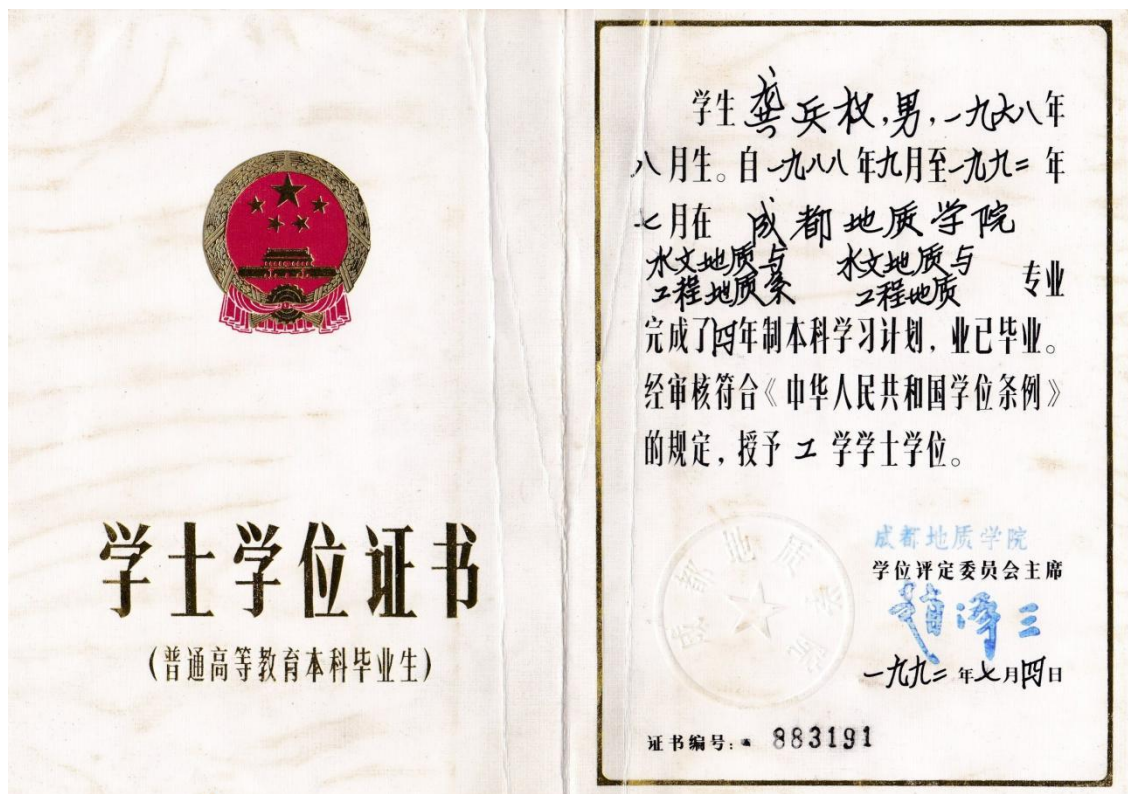 学士学位证书
(普通高等教育本科毕业生)
学生龚兵权,男,一九六八年
八月生。自一九八八年九月至一九九二年
七月在 成都地质学院
水文地质与工程地质系 水文地质与工程地质 专业
完成了四年制本科学习计划,业已毕业。
经审核符合《中华人民共和国学位条例》
的规定,授予 工 学学士学位。
成都地质学院
成都地质学院
学位评定委员会主席
赵泽三
一九九二年七月四日
证书编号: 883191